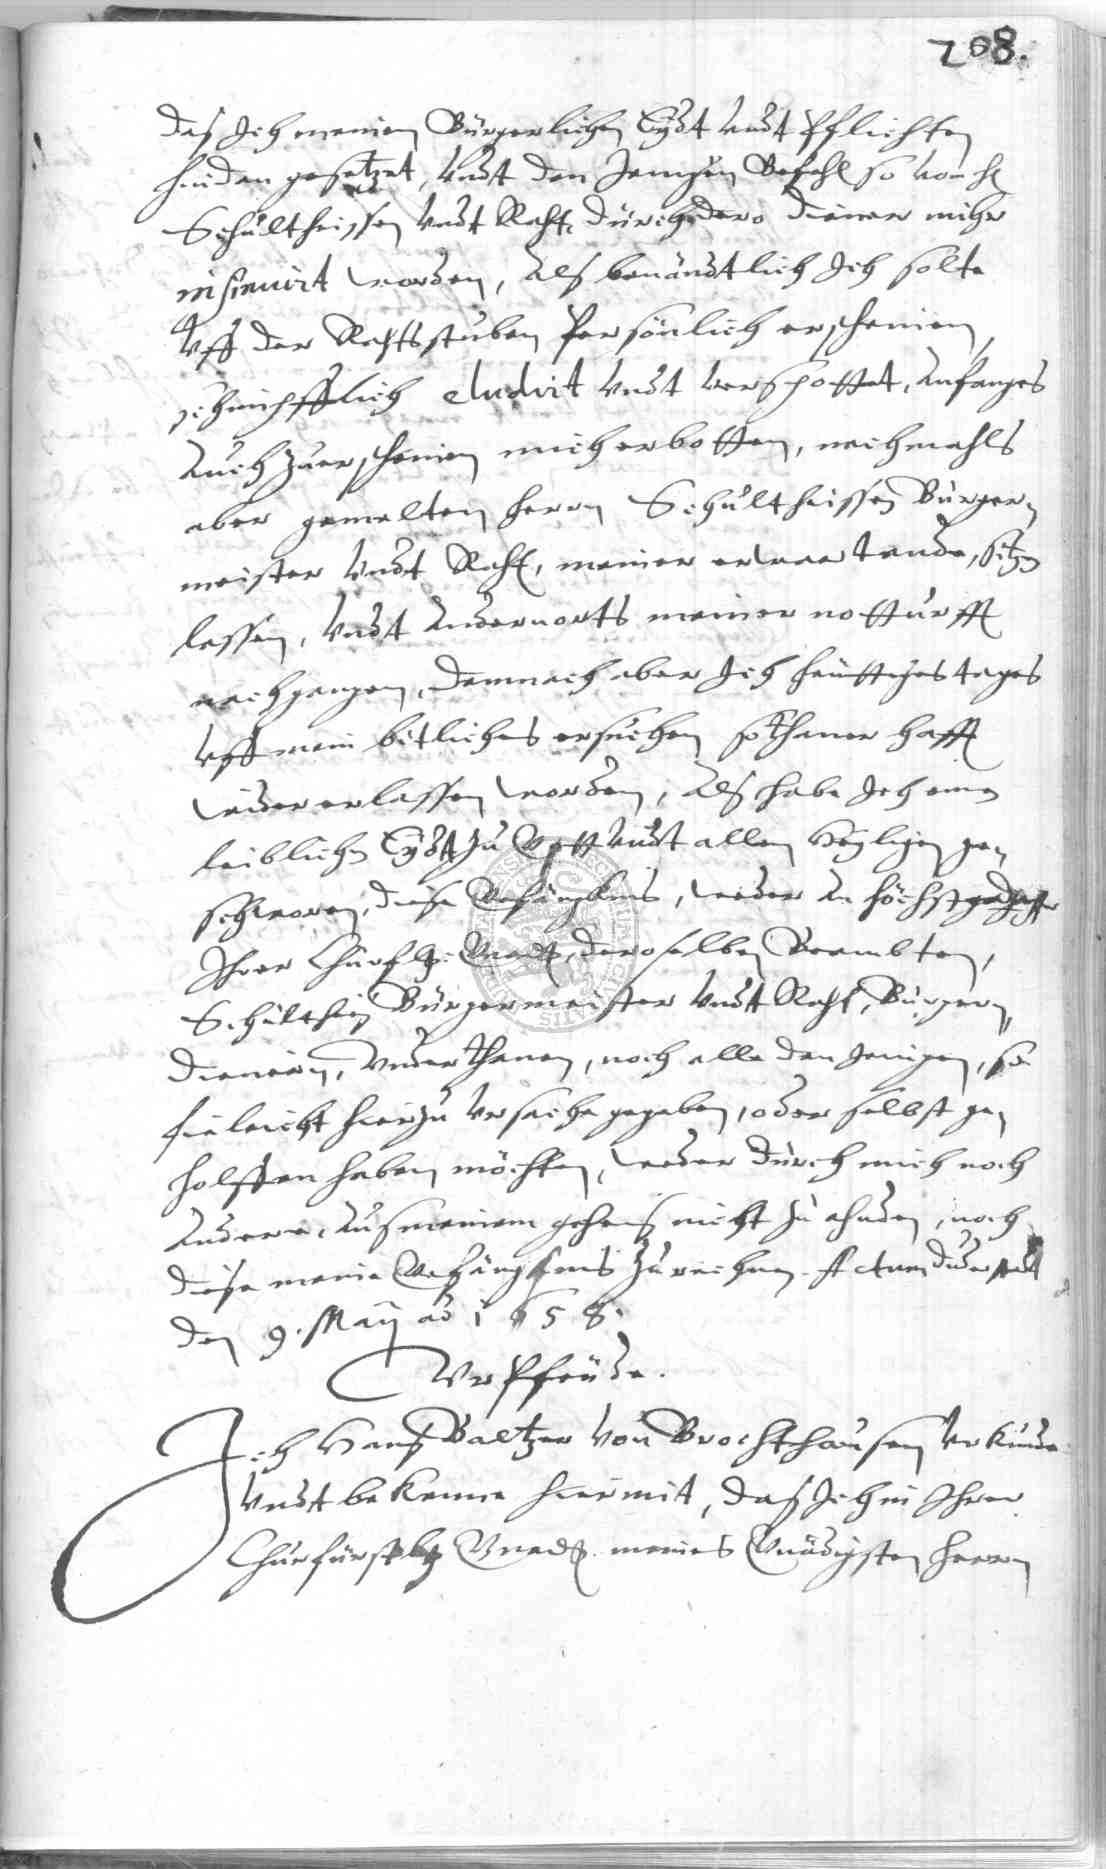 268.
daß Ich meinen Bürgerlichen Eydt vndt Pflichten
hindan gesetzet, vndt den Jenigen Befehl so von H
Schultheissen vndt Raht, durch dero diener mihr
insinuirt worden, Alß benändtlich Ich solte
vff der Rahtsstuben Persönlich erscheinen,
schimpfflich eludirt vndt verspottet, Anfanges
Auch zuerscheinen mich erbotten, nachmahls
aber gemelten Herrn Schultheissen Bürger-
meister vndt Raht, meiner erwartende, sitzen
lassen, vndt Anderworts meiner notturfft
nachgangen, demnach aber Ich heuttiges tages
vff mein bitliches ersuchen sothaner hafft
wider erlassen worden, Alß habe Ich einen
leiblichen Eydt zu Gott vndt allen Heyligen ge-
schworen, diese Gefängknis, weder An höchstgedachter
Ihrer Churfl: Gnad, deroselben Beambten,
Schultheis Bürgermeister vndt Raht, Bürgern,
Dienern, vnderthanen, noch alle den Jenigen, so
fieleicht hierzu vrsache gegeben, oder selbst ge-
holffen haben möchten, weder durch mich noch
Andere, Aus meinem geheis nicht zu ahnden, noch
diese meine Gefängknis zu rechnen. Actum Duderstadt
den 9. Maij ao 1658.
Vrpheude.
Ich Hanß Baltzer von Brochthausen Vrkunde
vndt bekenne hiermit, daß Ich in Ihrer
Churfürstl Gnad meines Gnädigsten Herrn